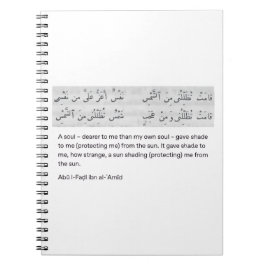 قامَتْ تُظَلِّلُنِي مِنَ الشَّمْسِ نَفْسٌ أَعَزُّ عَلَىَّ مِنْ نَفْسِي
قامَتْ تُظَلِّلُنِي وَمِنْ عَجَبٍ شَمْسٌ تُظَلِّلُنِي مِنَ الشَّمْسِ
A soul – dearer to me than my own soul – gave shade
to me (protecting me) from the sun. It gave shade to
me, how strange, a sun shading (protecting) me from
the sun.
Abū l-Faḍl Ibn al-ʿAmīd